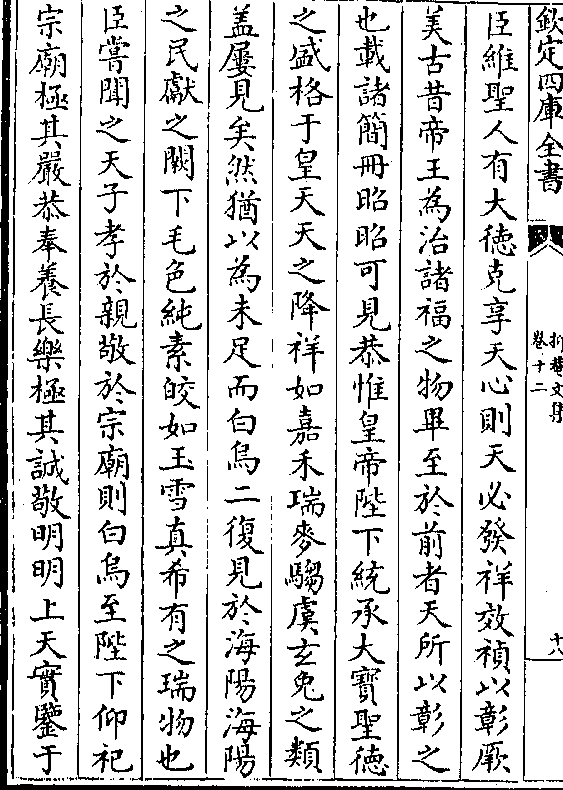 欽定四庫全書
抑菴文集
卷十二
十八
臣維聖人有大徳克享天心則天必發祥效禎以彰厥
美古昔帝王為治諸福之物畢至於前者天所以彰之
也載諸簡冊昭昭可見恭惟皇帝陛下統承大寶聖徳
之盛格于皇天天之降祥如嘉禾瑞麥騶虞玄兔之類
盖屢見矣然猶以為未足而白烏二復見於海陽海陽
之民獻之闕下毛色純素皎如玉雪真希有之瑞物也
臣嘗聞之天子孝於親敬於宗廟則白烏至陛下仰祀
宗廟極其嚴恭奉養長樂極其誠敬明明上天實鑒于